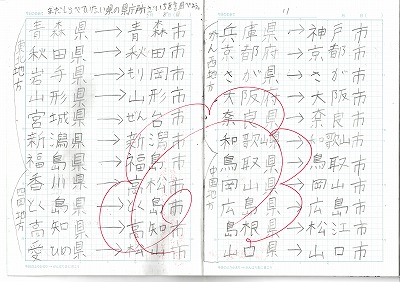 東北地方
青森県→青森市
秋田県→秋田市
岩手県→もり岡市
山形県→山形市
宮城県→ぜん台市
新潟県→新潟市
福島県→福島市
四国地方
香川県→高松市
とく島県→とく島市
高知県→高知市
愛ひめ県→松山市
かん西地方
兵庫県→神戸市
京都府→京都市
さが県→さが市
大阪府→大阪市
奈良県→奈良市
和歌山県→和歌山市
中国地方
鳥取県→鳥取市
岡山県→岡山市
広島県→広島市
島根県→松江市
山口県→山口市